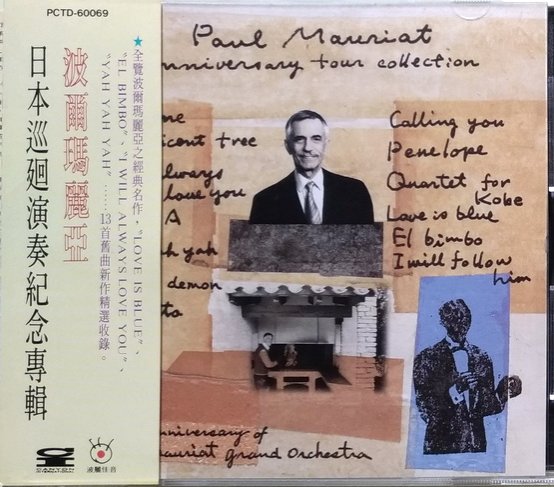 PCTD-60069
波爾瑪麗亞
日本巡迴演奏紀念專輯
★全覽波爾瑪麗亞之經典名作，"LOVE IS BLUE"、
"EL BIMBO"、"I WILL ALWAYS LOVE YOU"、
"YAH YAH YAH"……13首舊曲新作精選收錄。
CANYON
波麗佳音
Paul Mauriat
nniversary tour collection
ne
icent tree
lways
love you
A
h yah
demon
to
Calling you
Penelope
Quartet for
Kobe
Love is blue
El bimbo
I will follow
him
nniversary of
auriat Grand Orchestra